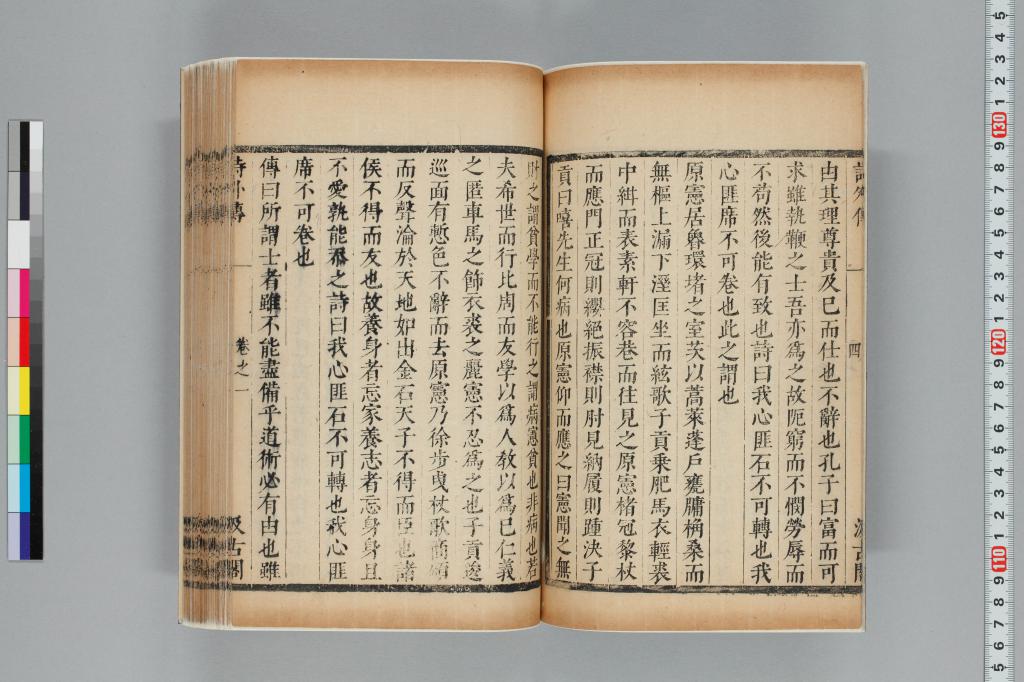 詩外傳
四
汲古閣
由其理尊貴及已而仕也不辭也孔子曰富而可
求雖執鞭之士吾亦爲之故阨窮而不憫勞辱而
不苟然後能有致也詩曰我心匪石不可轉也我
心匪席不可卷也此之謂也
原憲居魯環堵之室茨以蒿萊蓬戶甕牖桷桑而
無樞上漏下溼匡坐而絃歌子貢乘肥馬衣輕裘
中紺而表素軒不容巷而往見之原憲楮冠黎杖
而應門正冠則纓絕振襟則肘見納履則踵決子
貢曰嘻先生何病也原憲仰而應之曰憲聞之無
財之謂貧學而不能行之謂病憲貧也非病也若
夫希世而行比周而友學以爲人敎以爲已仁義
之匿車馬之飾衣裘之麗憲不忍爲之也子貢逡
巡面有慙色不辭而去原憲乃徐步曳杖歌商頌
而反聲淪於天地如出金石天子不得而臣也諸
侯不得而友也故養身者忘家養志者忘身身且
不愛孰能忝之詩曰我心匪石不可轉也我心匪
席不可卷也
傳曰所謂士者雖不能盡備乎道術必有由也雖
詩外傳
卷之一
汲古閣